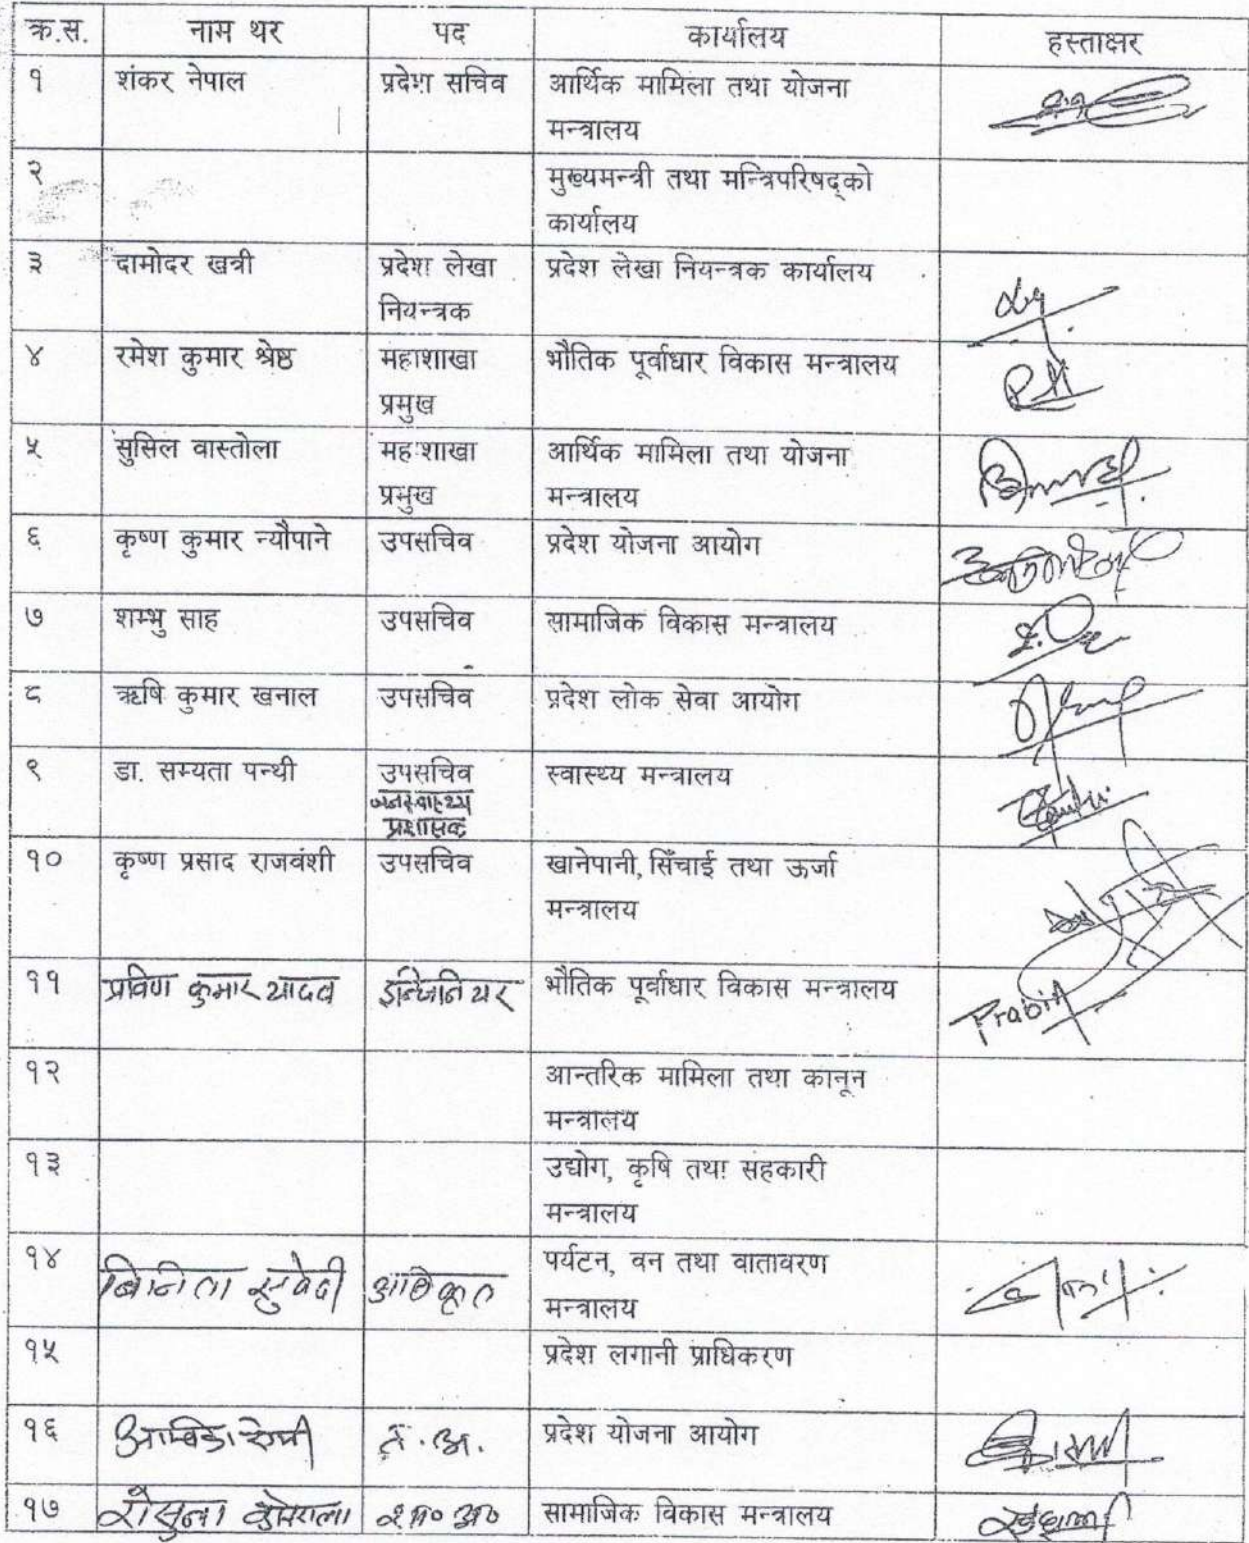 क्र.स. नाम थर पद कार्यालय हस्ताक्षर
१ शंकर नेपाल प्रदेश सचिव आर्थिक मामिला तथा योजना
मन्त्रालय
२ मुख्यमन्त्री तथा मन्त्रिपरिषद्को
कार्यालय
३ दामोदर खत्री प्रदेश लेखा प्रदेश लेखा नियन्त्रक कार्यालय
नियन्त्रक
४ रमेश कुमार श्रेष्ठ महाशाखा भौतिक पूर्वाधार विकास मन्त्रालय
प्रमुख
५ सुसिल वास्तोला महाशाखा आर्थिक मामिला तथा योजना
प्रमुख मन्त्रालय
६ कृष्ण कुमार न्यौपाने उपसचिव प्रदेश योजना आयोग
७ शम्भु साह उपसचिव सामाजिक विकास मन्त्रालय
८ ऋषि कुमार खनाल उपसचिव प्रदेश लोक सेवा आयोग
९ डा. सम्यता पन्थी उपसचिव स्वास्थ्य मन्त्रालय
जनस्वास्थ्य
प्रशासक
१० कृष्ण प्रसाद राजवंशी उपसचिव खानेपानी, सिँचाई तथा ऊर्जा
मन्त्रालय
११ प्रविण कुमार यादव इन्जिनियर भौतिक पूर्वाधार विकास मन्त्रालय Prabin
१२ आन्तरिक मामिला तथा कानून
मन्त्रालय
१३ उद्योग, कृषि तथा सहकारी
मन्त्रालय
१४ पर्यटन, वन तथा वातावरण
बिनिता सुवेदी अधिकृत मन्त्रालय
१५ प्रदेश लगानी प्राधिकरण
१६ प्रदेश योजना आयोग
१७ सामाजिक विकास मन्त्रालय